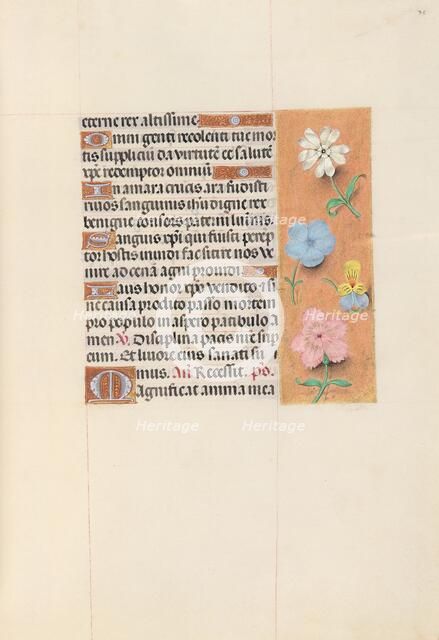 eterne rex altissime.
Omni genti recolenti tue mor
tis supplicium da virtutem et salutem
xpe redemptor omnium.
In amara crucis ara fudisti
rivos sanguinis ihu digne rex
benigne consors paterni luminis.
Sanguis xpi qui fuisti perep
tor hostis mundi fac sitire nos ve
nire ad cenam agni providi.
Laus honor xpo vendito et si
ne causa prodito passo mortem
pro populo in aspero patibulo A
men. V. Disciplina pacis nre sup
eum. Et livore eius sanati su
mus. An Recessit. ps.
Magnificat anima mea
Heritage
Heritage
Heritage
Heritage
Heritage
Heritage
Heritage